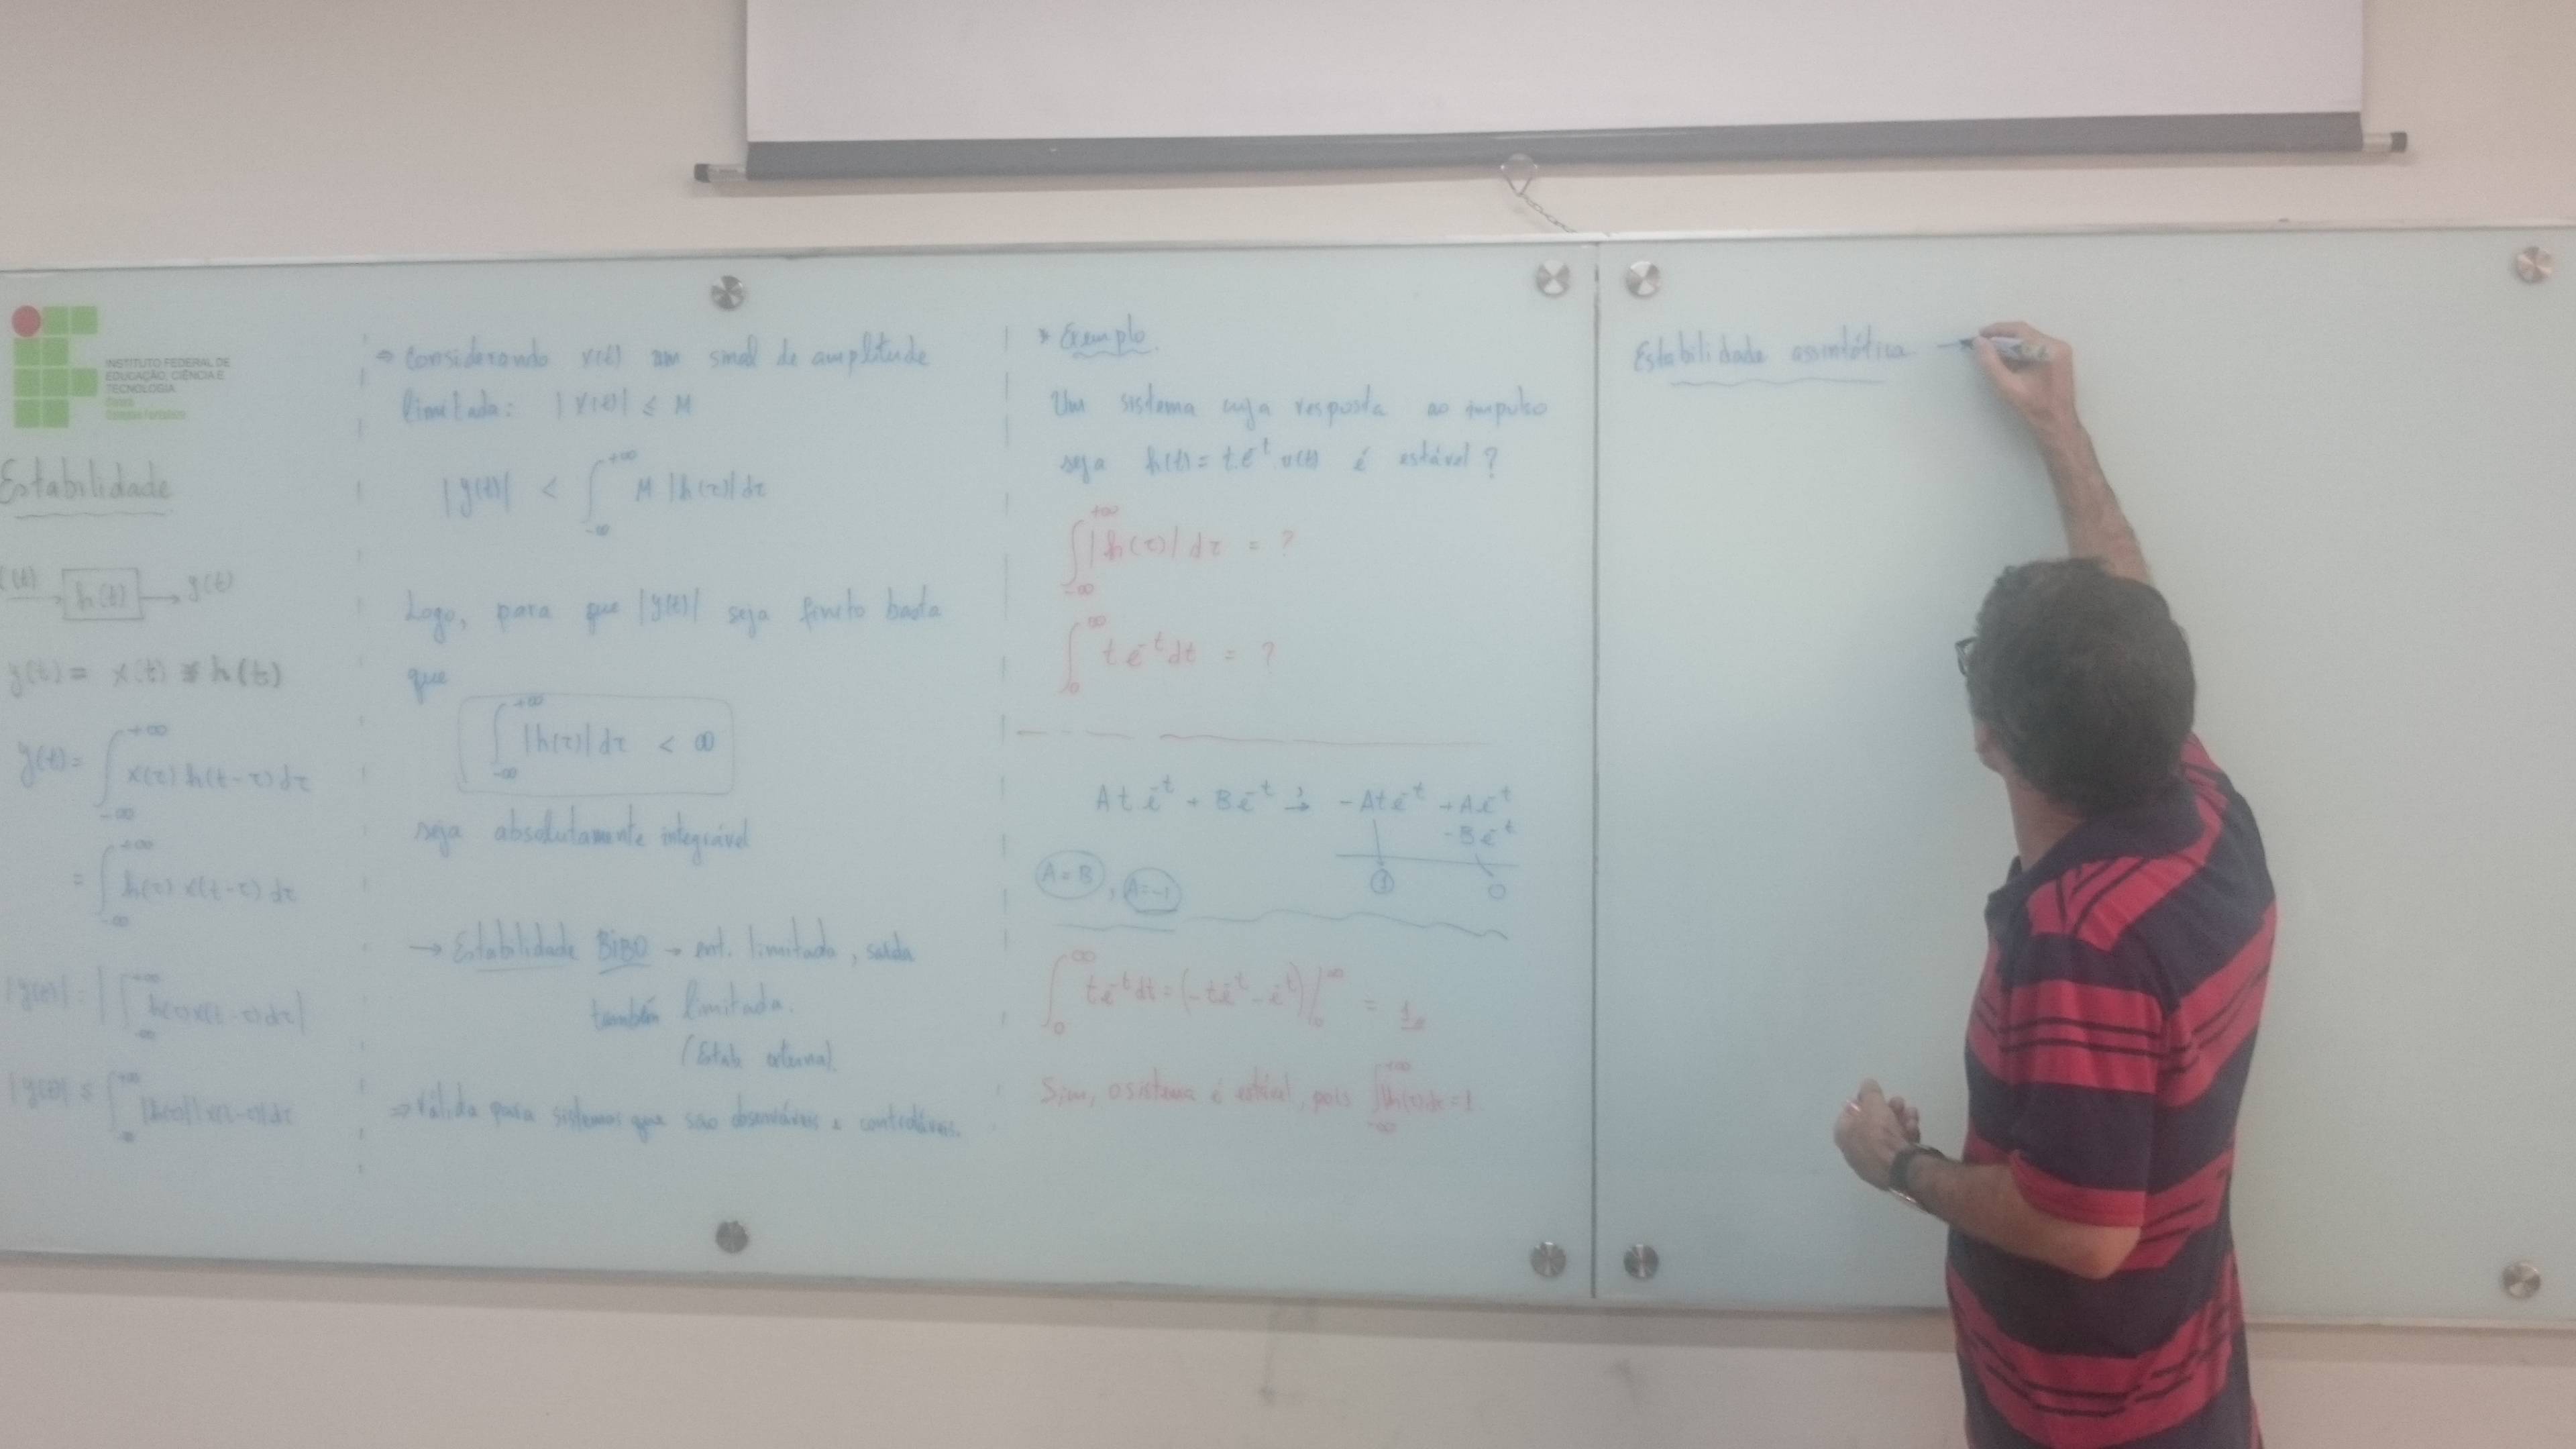 INSTITUTO FEDERAL DE
EDUCAÇÃO, CIÊNCIA E
TECNOLOGIA
Ceará
Estabilidade
x(t) → h(t) → y(t)
y(t) = x(t) * h(t)
y(t) = ∫_{-∞}^{+∞} x(τ) h(t-τ) dτ
= ∫_{-∞}^{+∞} h(τ) x(t-τ) dτ
|y(t)| = | ∫_{-∞}^{+∞} h(τ) x(t-τ) dτ |
|y(t)| ≤ ∫_{-∞}^{+∞} |h(τ)| |x(t-τ)| dτ
⇒ Considerando x(t) um sinal de amplitude
limitada: |x(t)| ≤ M
|y(t)| < ∫_{-∞}^{+∞} M |h(τ)| dτ
Logo, para que |y(t)| seja finito basta
que
∫_{-∞}^{+∞} |h(τ)| dτ < ∞
seja absolutamente integrável
→ Estabilidade BIBO → ent. limitada, saída
também limitada.
(Estab. externa).
⇒ Válida para sistemas que são observáveis e controláveis.
* Exemplo.
Um sistema cuja resposta ao impulso
seja h(t) = t.e^{-t}.u(t) é estável?
∫_{-∞}^{+∞} |h(τ)| dτ = ?
∫_0^∞ t e^{-t} dt = ?
A t e^{-t} + B e^{-t} → - A t e^{-t} + A e^{-t}
- B e^{-t}
1 0
A = B, A = -1
∫_0^∞ t e^{-t} dt = (-t e^{-t} - e^{-t}) |_0^∞ = 1
Sim, o sistema é estável, pois ∫_{-∞}^{+∞} |h(τ)| dτ = 1.
Estabilidade assintótica →